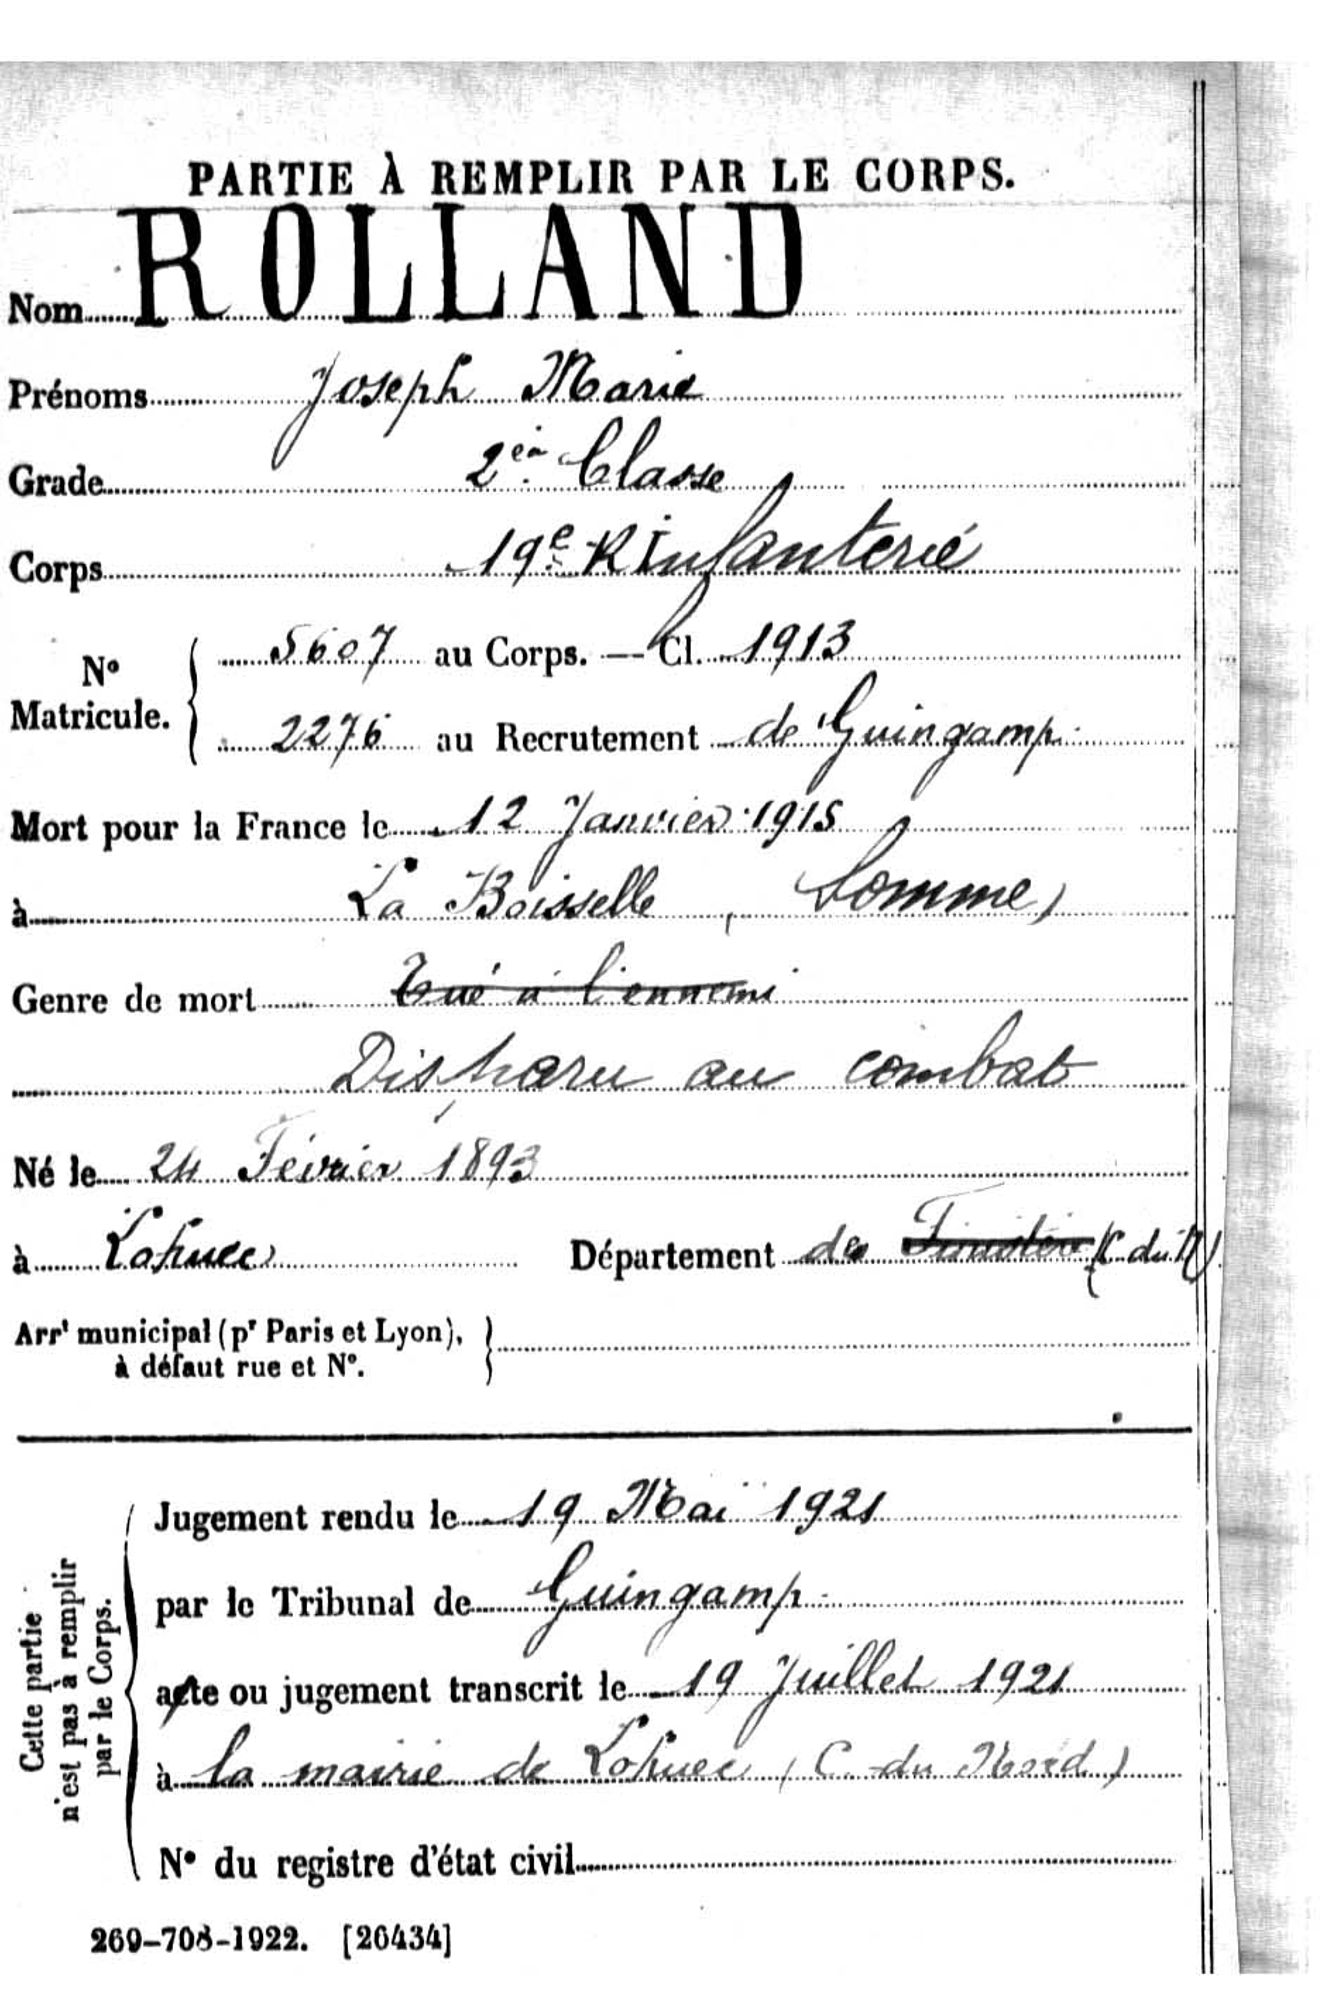 PARTIE À REMPLIR PAR LE CORPS.
Nom ROLLAND
Prénoms Joseph Marie
Grade 2è Classe
Corps 19e R Infanterie
No Matricule. { 5607 au Corps. — Cl. 1913
2276 au Recrutement de Guingamp
Mort pour la France le 12 Janvier 1915
à La Boisselle, Somme)
Genre de mort Tué à l'ennemi
Disparu au combat
Né le 24 Février 1893
à Lohuec Département des Finistère (C. du N)
Arrt municipal (pr Paris et Lyon), }
à défaut rue et No.
Cette partie
n'est pas à remplir
par le Corps.
Jugement rendu le 19 Mai 1921
par le Tribunal de Guingamp
acte ou jugement transcrit le 19 Juillet 1921
à la mairie de Lohuec (C. du Nord)
No du registre d'état civil
269-708-1922. [26434]